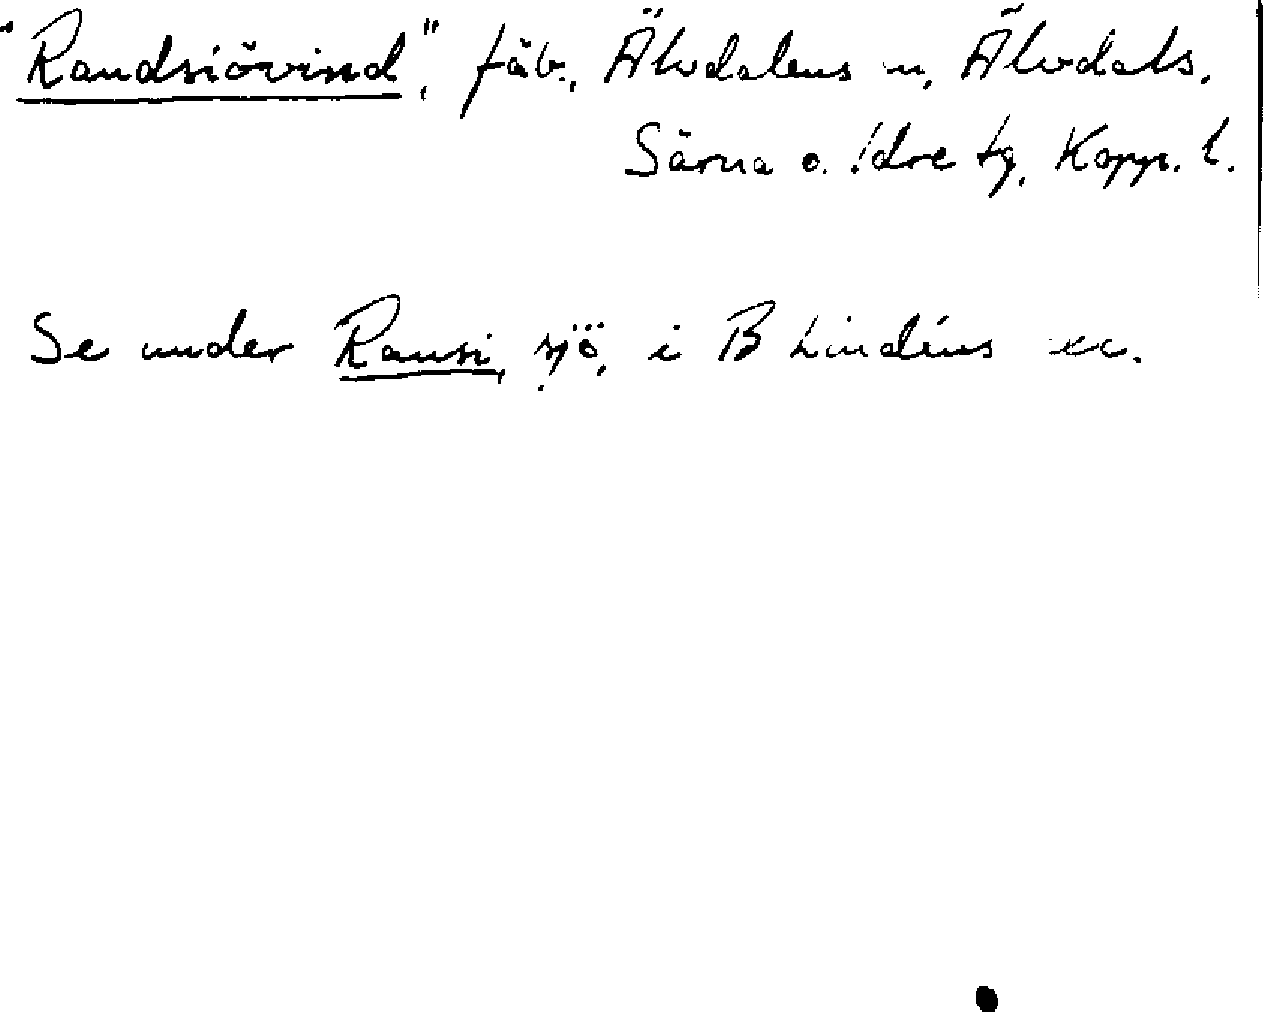 "Randsiövind", fäb., Älvdalens sn, Älvdals,
Särna o. Idre tg, Kopp. l.
Se under Ransi, sjö, i B Lindéns ex.